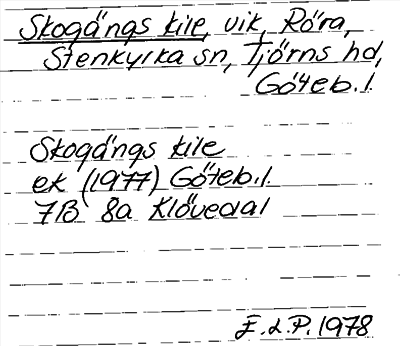 Skogängs kile, vik, Röra,
Stenkyrka sn, Tjörns hd,
Göteb. l.
Skogängs kile
ek (1977) Göteb. l.
7B 8a Klövedal
E. L. P. 1978